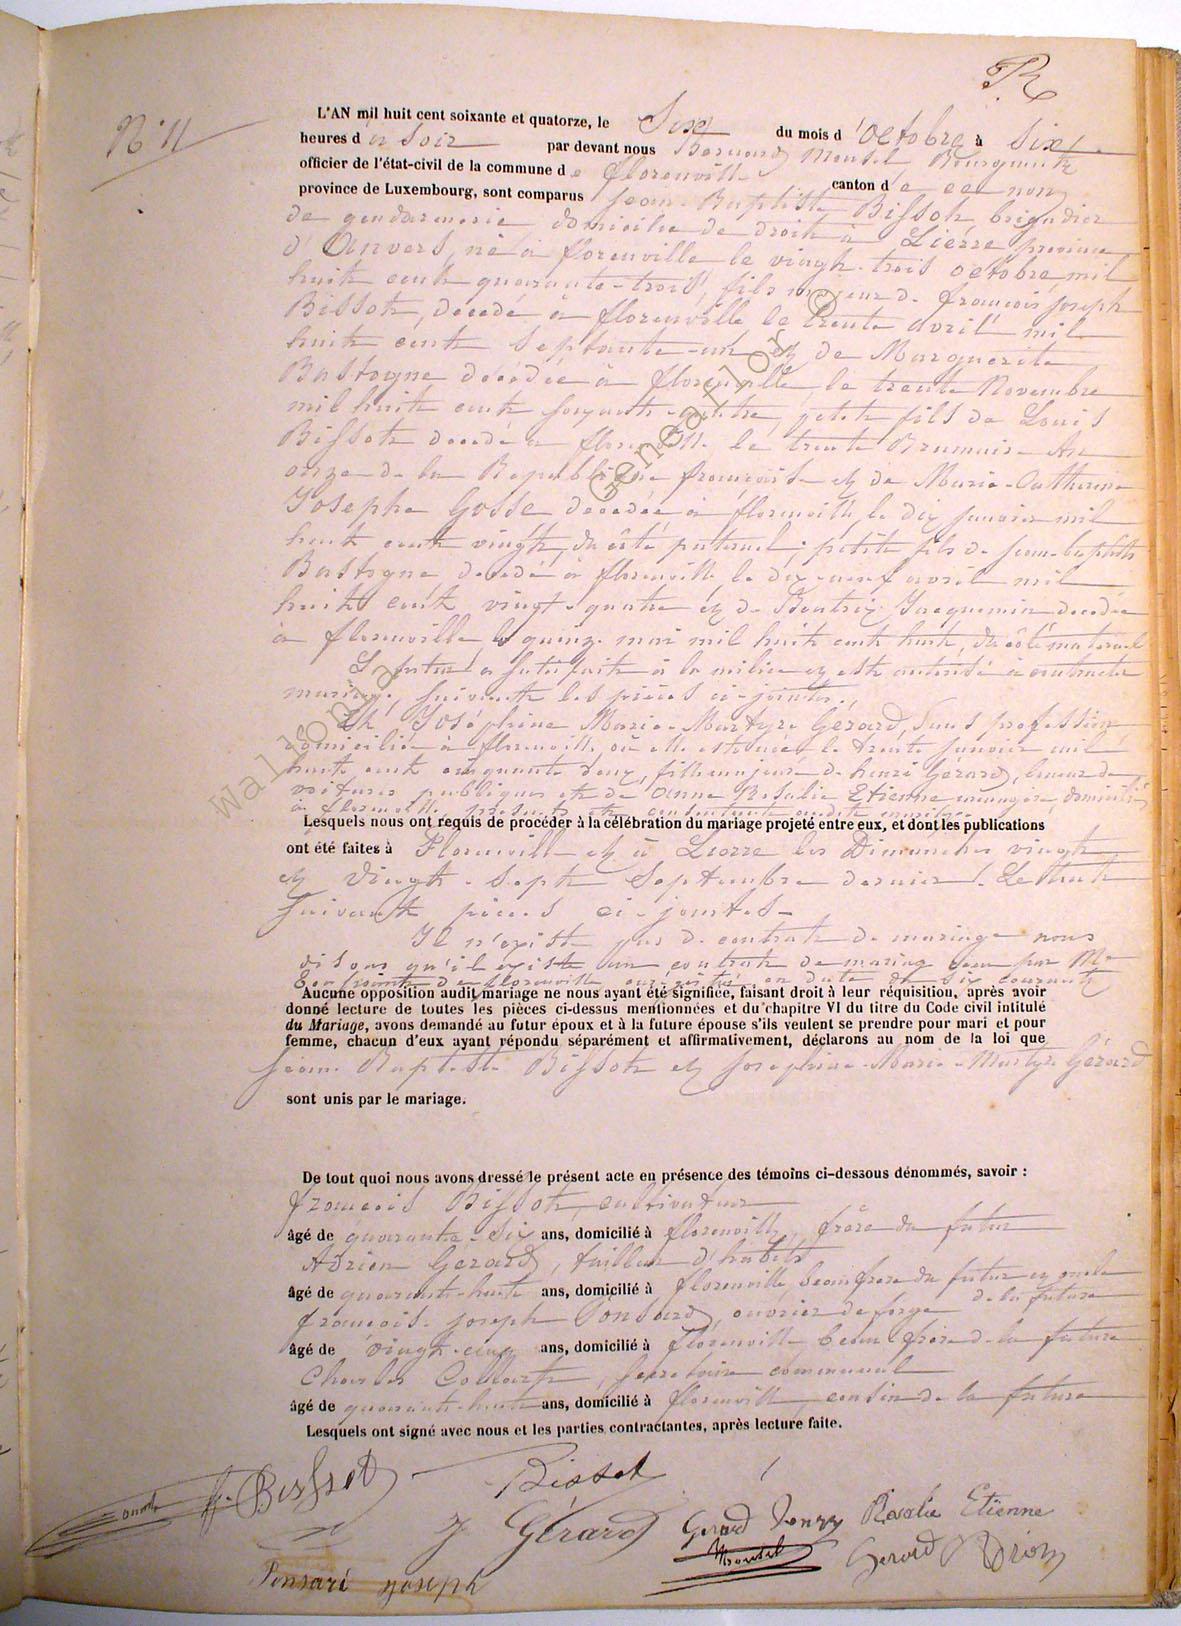 R
N° 11
L'AN mil huit cent soixante et quatorze, le Six du mois d'Octobre à Six
heures du Soir par devant nous Bernard Mousel, Bourgmestre
officier de l'état-civil de la commune de florenville canton de ce nom
province de Luxembourg, sont comparus Jean-Baptiste Bissot, brigadier
de gendarmerie, domicilié de droit à Lierre province
d'Anvers, né à florenville le vingt-trois octobre mil
huit cent quarante-trois, fils majeur de françois joseph
Bissot, décédé à florenville, le trente avril mil
huit cent septante-un et de Marguerite
Bastogne décédée à florenville, le trente Novembre
mil huit cent soixante-quatre, petit fils de Louis
Bissot décédé à florenville le trente Brumaire An
onze de la République française et de Marie-Catherine
Josephe Gosse décédée à florenville, le dix janvier mil
huit cent vingt, du côté paternel; petit fils de jean-baptiste
Bastogne, décédé à florenville, le dix-neuf avril mil
huit cent vingt-quatre et de Beatrix Jacquemin décédée
à florenville le quinze mai mil huit cent huit, du côté maternel
Le futur a satisfait à la milice et est autorisé à contracter
mariage, suivant les pièces ci-jointes.
Et Joséphine Marie-Martyre Gérard, sans profession
domiciliée à florenville, où elle est née le trente janvier mil
huit cent cinquante deux, fille majeure de henri Gérard, loueur de
voitures publiques et de Anne Rosalie Etienne ménagère, domiciliés
à florenville, présents et consentants audit mariage
Lesquels nous ont requis de procéder à la célébration du mariage projeté entre eux, et dont les publications
ont été faites à Florenville et à Lierre les Dimanches vingt
et vingt-sept Septembre dernier. Le tout
suivant pièces ci-jointes-
Il n'existe pas de contrat de mariage nous
disons qu'il existe un contrat de mariage par Me
de florenville en date du six courant
Aucune opposition audit mariage ne nous ayant été signifiée, faisant droit à leur réquisition, après avoir
donné lecture de toutes les pièces ci-dessus mentionnées et du chapitre VI du titre du Code civil intitulé
du Mariage, avons demandé au futur époux et à la future épouse s'ils veulent se prendre pour mari et pour
femme, chacun d'eux ayant répondu séparément et affirmativement, déclarons au nom de la loi que
Jean-Baptiste Bissot et Josephine-Marie-Martyre Gérard
sont unis par le mariage.
De tout quoi nous avons dressé le présent acte en présence des témoins ci-dessous dénommés, savoir :
françois Bissot, cultivateur
âgé de quarante-six ans, domicilié à florenville, frère du futur
Adrien Gérard, tailleur d'habits
âgé de quarante-huit ans, domicilié à florenville, beau frère du futur et oncle
de la future
françois-joseph Ponsard, ouvrier de forge
âgé de vingt-cinq ans, domicilié à florenville beau frère de la future
Charles Collart, secrétaire communal
âgé de quarante-huit ans, domicilié à florenville, cousin de la future
Lesquels ont signé avec nous et les parties contractantes, après lecture faite.
F. Bissot
Bissot
J Gérard
Gerard Henry
Rosalie Etienne
Mousel
Gerard Adrien
Ponsard joseph
wallonia Geneanet.org ©